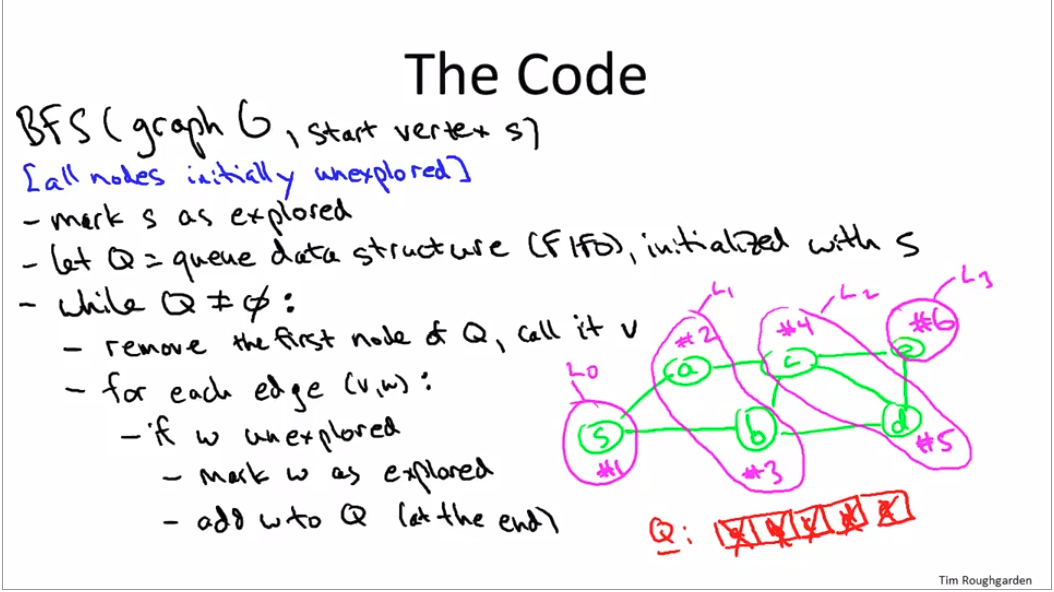 The Code
BFS(graph G, start vertex s)
[all nodes initially unexplored]
- mark s as explored
- let Q = queue data structure (FIFO), initialized with s
- while Q ≠ ∅:
- remove the first node of Q, call it v
- for each edge (v,w):
- if w unexplored
- mark w as explored
- add w to Q (at the end)
L0
L1
L2
L3
s
#1
a
#2
b
#3
c
#4
d
#5
e
#6
Q:
Tim Roughgarden